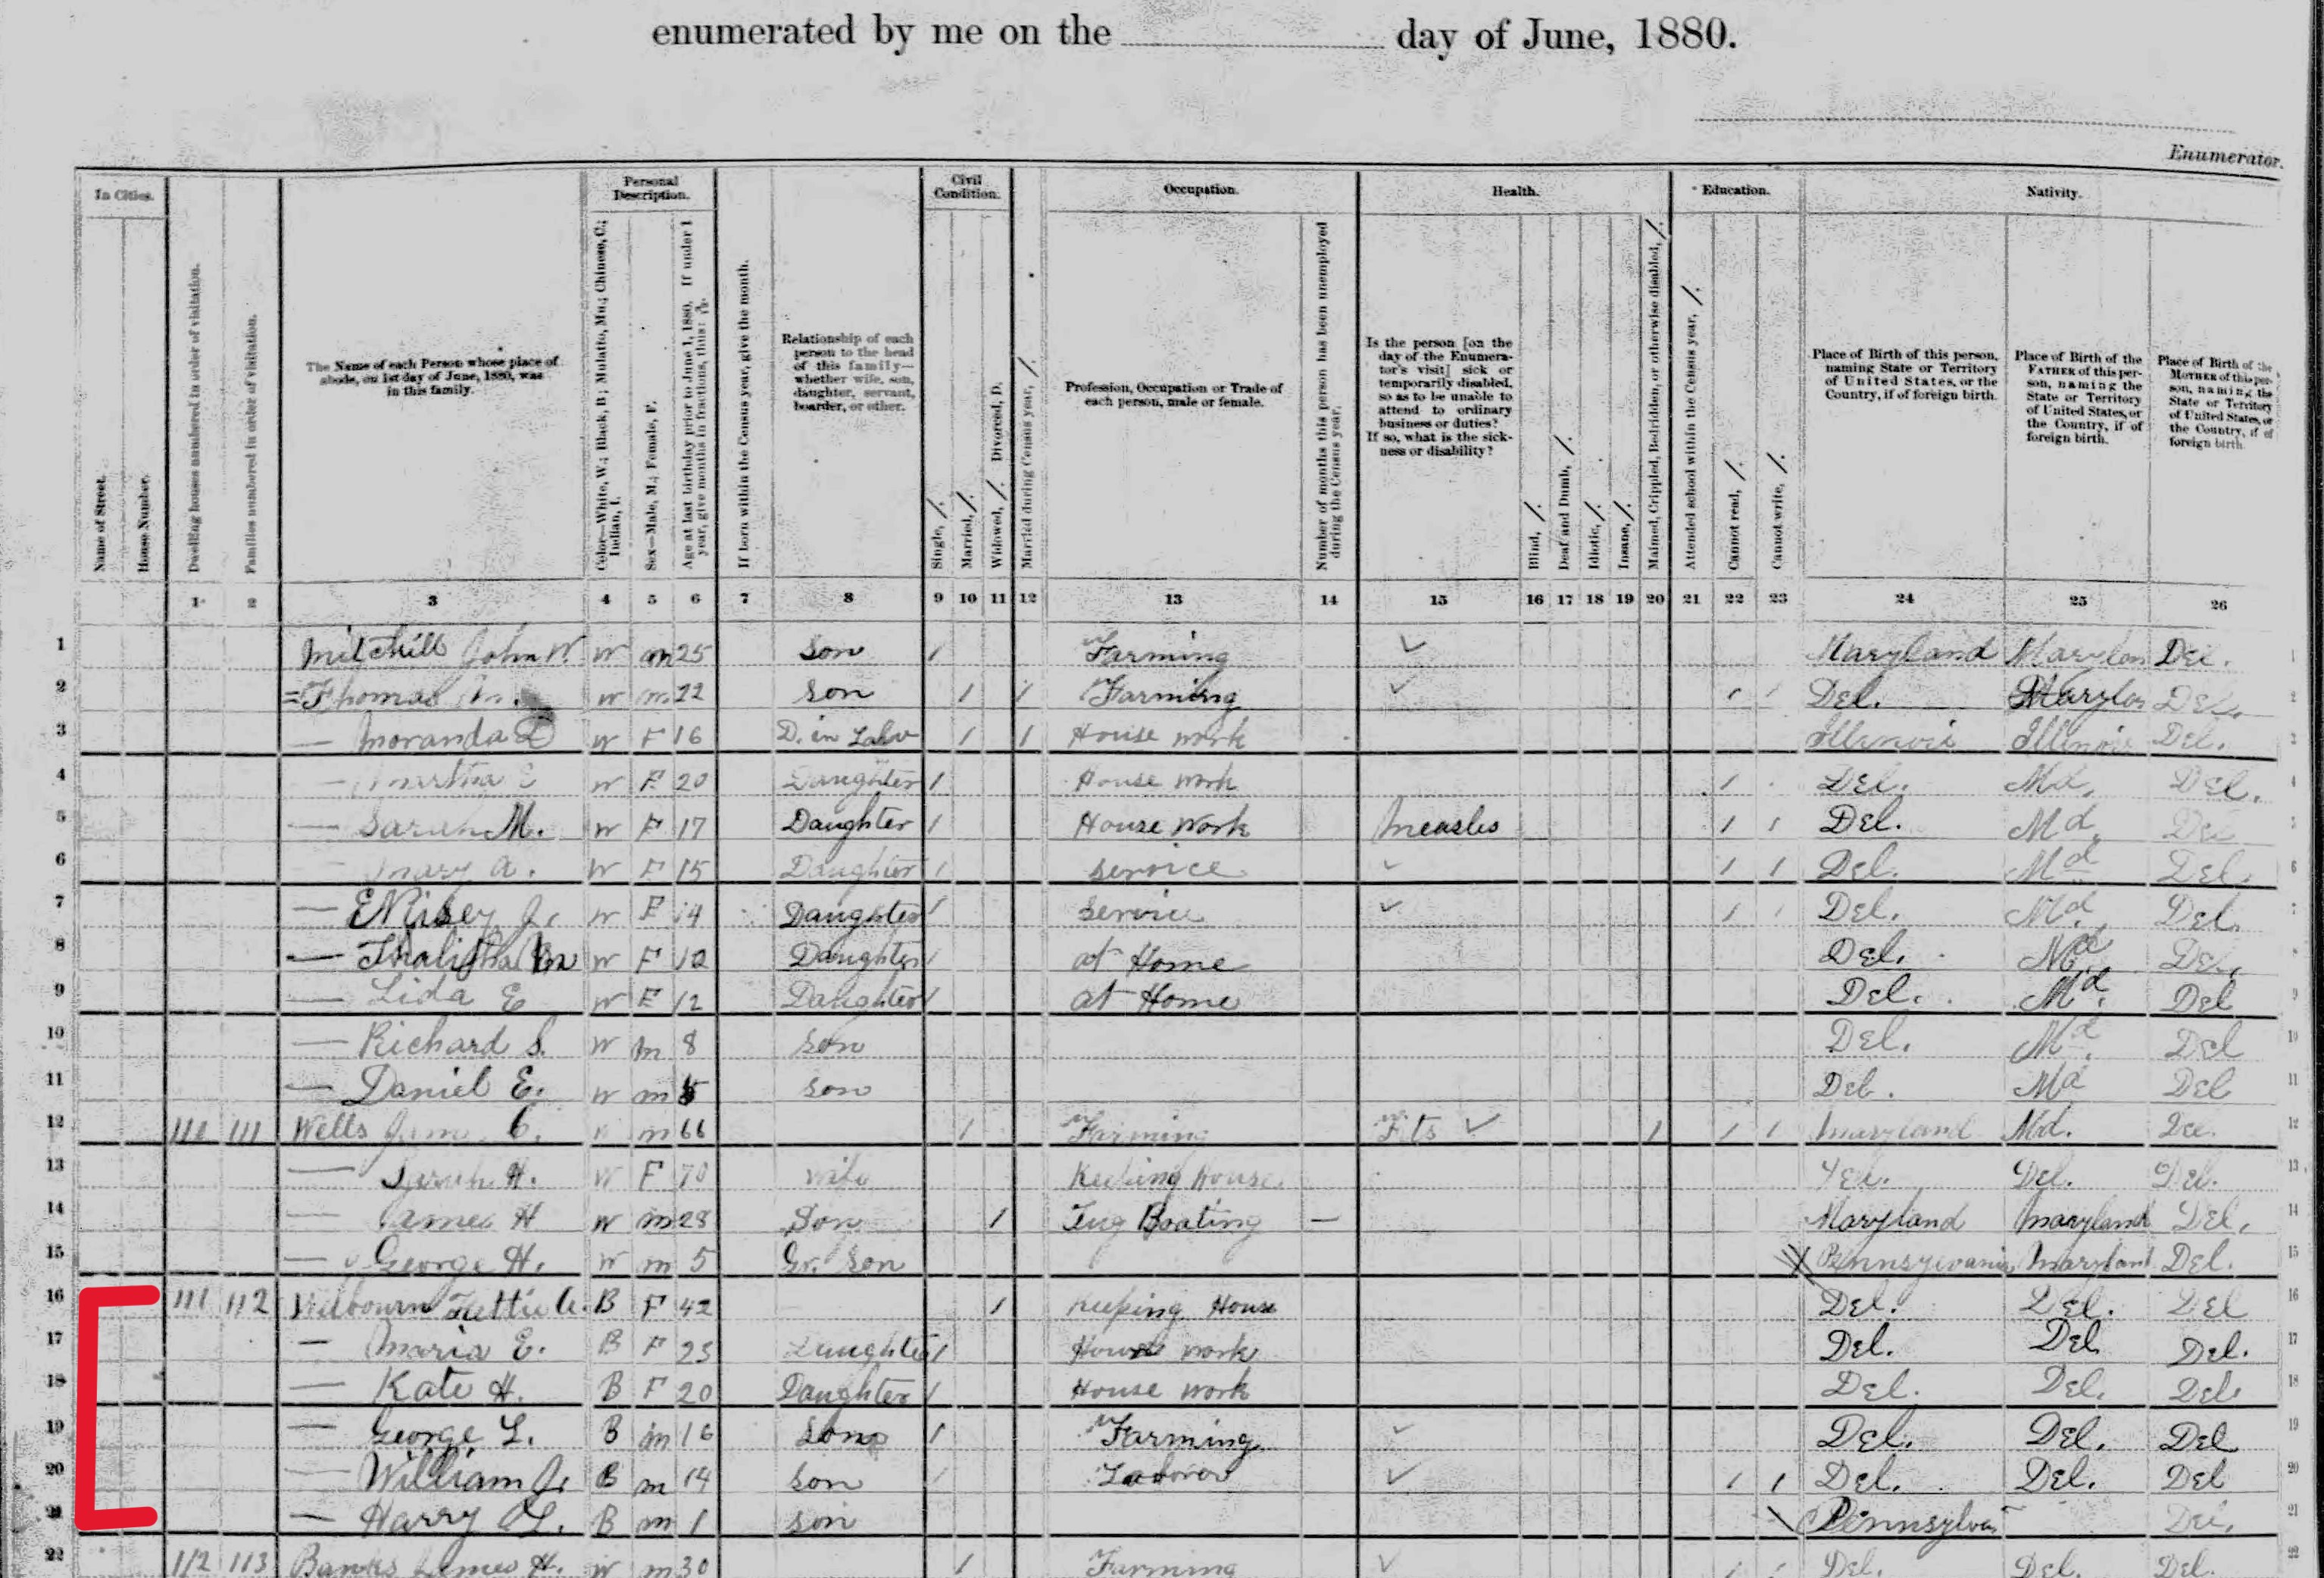 enumerated by me on the ............ day of June, 1880.
Enumerator.
In Cities. Personal Description. Civil Condition. Occupation. Health. Education. Nativity.
Name of Street.
House Number.
Dwelling houses numbered in order of visitation.
Families numbered in order of visitation.
The Name of each Person whose place of abode, on 1st day of June, 1880, was in this family.
Color—White, W.; Black, B.; Mulatto, Mu.; Chinese, C.; Indian, I.
Sex—Male, M.; Female, F.
Age at last birthday prior to June 1, 1880. If under 1 year, give months in fractions, thus: 3/12.
If born within the Census year, give the month.
Relationship of each person to the head of this family—whether wife, son, daughter, servant, boarder, or other.
Single, /.
Married, /.
Widowed, /. Divorced, D.
Married during Census year, /.
Profession, Occupation or Trade of each person, male or female.
Number of months this person has been unemployed during the Census year.
Is the person [on the day of the Enumerator's visit] sick or temporarily disabled, so as to be unable to attend to ordinary business or duties? If so, what is the sickness or disability?
Blind, /.
Deaf and Dumb, /.
Idiotic, /.
Insane, /.
Maimed, Crippled, Bedridden, or otherwise disabled, /.
Attended school within the Census year, /.
Cannot read, /.
Cannot write, /.
Place of Birth of this person, naming State or Territory of United States, or the Country, if of foreign birth.
Place of Birth of the FATHER of this person, naming the State or Territory of United States, or the Country, if of foreign birth.
Place of Birth of the MOTHER of this person, naming the State or Territory of United States, or the Country, if of foreign birth.
1 2 3 4 5 6 7 8 9 10 11 12 13 14 15 16 17 18 19 20 21 22 23 24 25 26
1 Mitchill John W. W m 25 son / Farming ✓ Maryland Marylan Del. 1
2 = Thomas W m 22 son / / Farming ✓ / / Del. Marylan Del. 2
3 — Moranda W F 16 D. in Law / / House work Illinois Illinois Del. 3
4 — Martha E W F 20 Daughter / House work / Del. Md. Del. 4
5 — Sarah M. W F 17 Daughter / House work Measles / / Del. Md. Del 5
6 — Mary A. W F 15 Daughter / Service ✓ / / Del. Md Del. 6
7 — J. W F 14 Daughter / Service ✓ / / Del. Md. Del. 7
8 — W F 12 Daughter / at Home Del. Md Del. 8
9 — Lida E W F 12 Daughter / at Home Del. Md. Del 9
10 — Richard S. W m 8 son Del. Md. Del 10
11 — Daniel E. W m son Del. Md Del 11
12 111 111 Wells C. W m 66 / Farming Fits ✓ / / / Maryland Md. Del. 12
13 — Sarah H. W F 70 wife Keeping House. Del. Del. Del. 13
14 — James H W m 28 Son / Tug Boating — Maryland Maryland Del. 14
15 — George H. W m 5 Gr. Son Pennsylvania Maryland Del. 15
16 111 112 Wilbourn Hettie A. B F 42 / Keeping House Del. Del. Del 16
17 — Maria E. B F 25 Daughter / House work Del. Del Del. 17
18 — Kate H. B F 20 Daughter / House work Del. Del. Del. 18
19 — George L. B m 16 Son / Farming ✓ Del. Del. Del 19
20 — William J. B m 14 son / Laborer ✓ / / Del. Del. Del 20
21 — Harry L. B m 1 son Pennsylvan Del. 21
22 112 113 Banks James H. W m 30 / Farming ✓ / / Del. Del. Del. 22